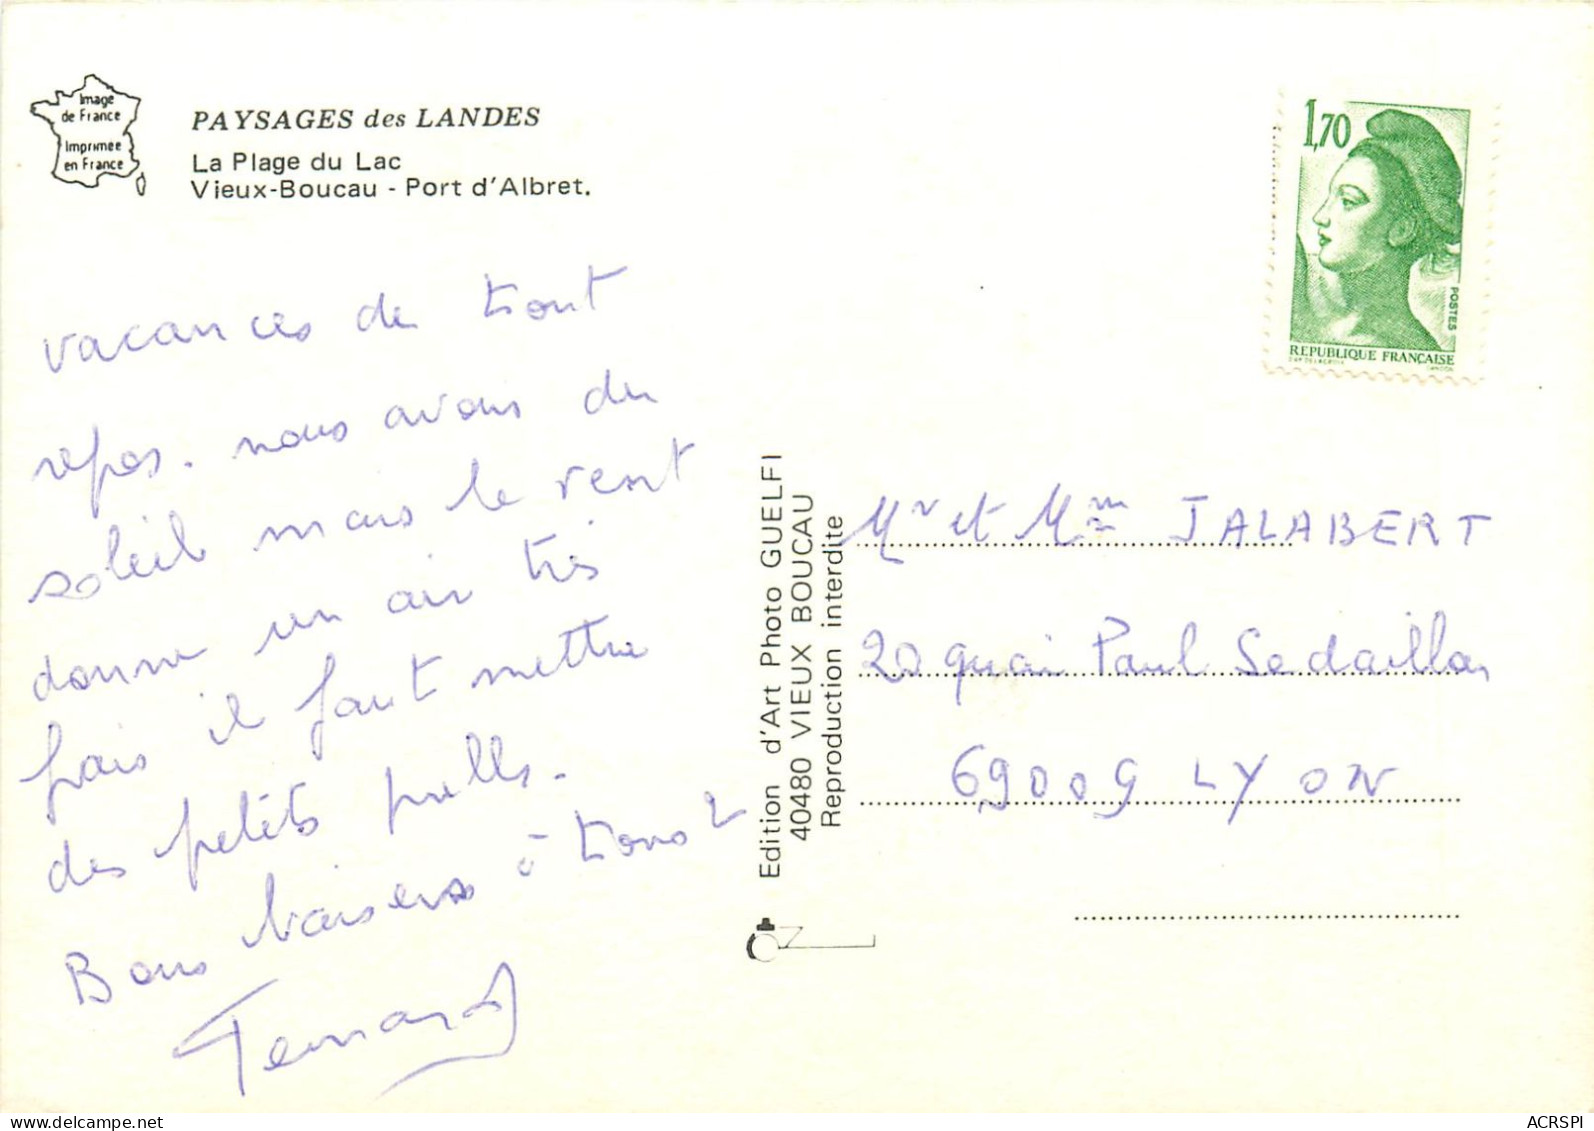 Image
de France
Imprimée
en France
PAYSAGES des LANDES
La Plage du Lac
Vieux-Boucau - Port d'Albret.
vacances de tout
repos. nous avons du
soleil mais le vent
donne un air très
frais il faut mettre
des petits pulls.
Bons baisers à tous 2
1,70
POSTES
REPUBLIQUE FRANÇAISE
Edition d'Art Photo GUELFI
40480 VIEUX BOUCAU
Reproduction interdite
Mr et Mm JALABERT
20 quai Paul Sedaillan
69009 LYON
ACRSPI